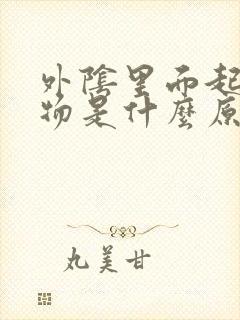 外陰里而起
物是什麼原
丸美甘